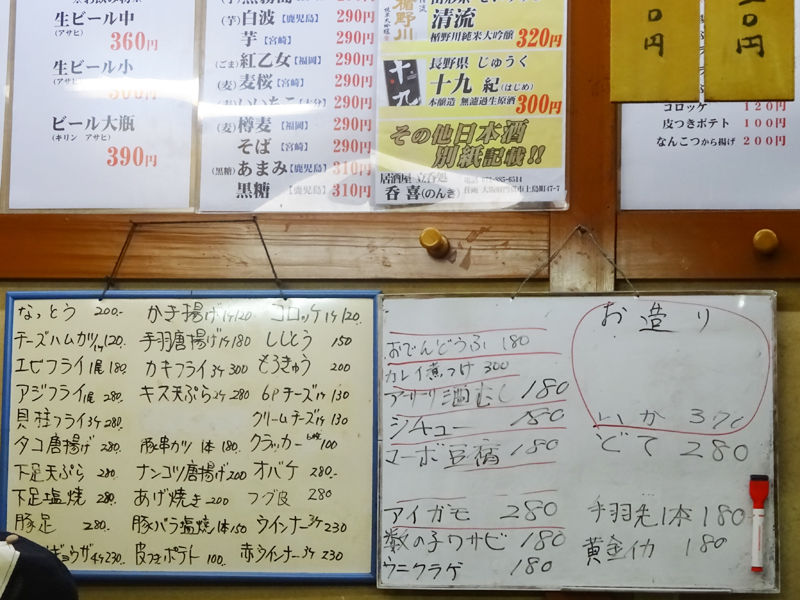 生ビール中
(アサヒ)
360円
生ビール小
(アサヒ)
300円
ビール大瓶
(キリン アサヒ)
390円
(芋)白波【鹿児島】 290円
芋【宮崎】 290円
(ごま)紅乙女【福岡】 290円
(麦)麦桜【宮崎】 290円
いいちこ 290円
(麦)樽麦【福岡】 290円
そば【宮崎】 290円
(黒糖)あまみ【鹿児島】 310円
黒糖【鹿児島】 310円
楯野川
清流
楯野川純米大吟醸 320円
十九
長野県 じゅうく
十九 紀(はじめ)
本醸造 無濾過生原酒 300円
その他日本酒
別紙記載!!
居酒屋 立呑処
呑喜(のんき)
0円
0円
コロッケ 120円
皮つきポテト 100円
なんこつから揚げ 200円
なっとう 200.-
チーズハムカツ1ケ120
エビフライ1尾180
アジフライ1尾280.
貝柱フライ3ケ280.
タコ唐揚げ 280.
下足天ぷら 280.
下足塩焼 280.
豚足 280.
ギョウザ4ケ230.
かき揚げ1ケ120
手羽唐揚げ1ケ180
カキフライ3ケ300
キス天ぷら2ケ280
豚串カツ 1本180.
ナンコツ唐揚げ200
あげ焼き200
豚バラ塩焼1本150
皮つきポテト 100.
コロッケ1ケ120.
ししとう 150
もろきゅう 200
6Pチーズ1ケ130
クリームチーズ1ケ130
クラッカー 100
オバケ 280.-
フグ皮 280
ウインナー3ケ230
赤ウインナー3ケ230
おでんどうふ 180
カレイ煮つけ 300
アサリ酒むし 180
シチュー 180
マーボ豆腐 180
アイガモ 280
数の子ワサビ 180
ウニクラゲ 180
お造り
いか 370
どて 280
手羽先1本180
黄金イカ 180